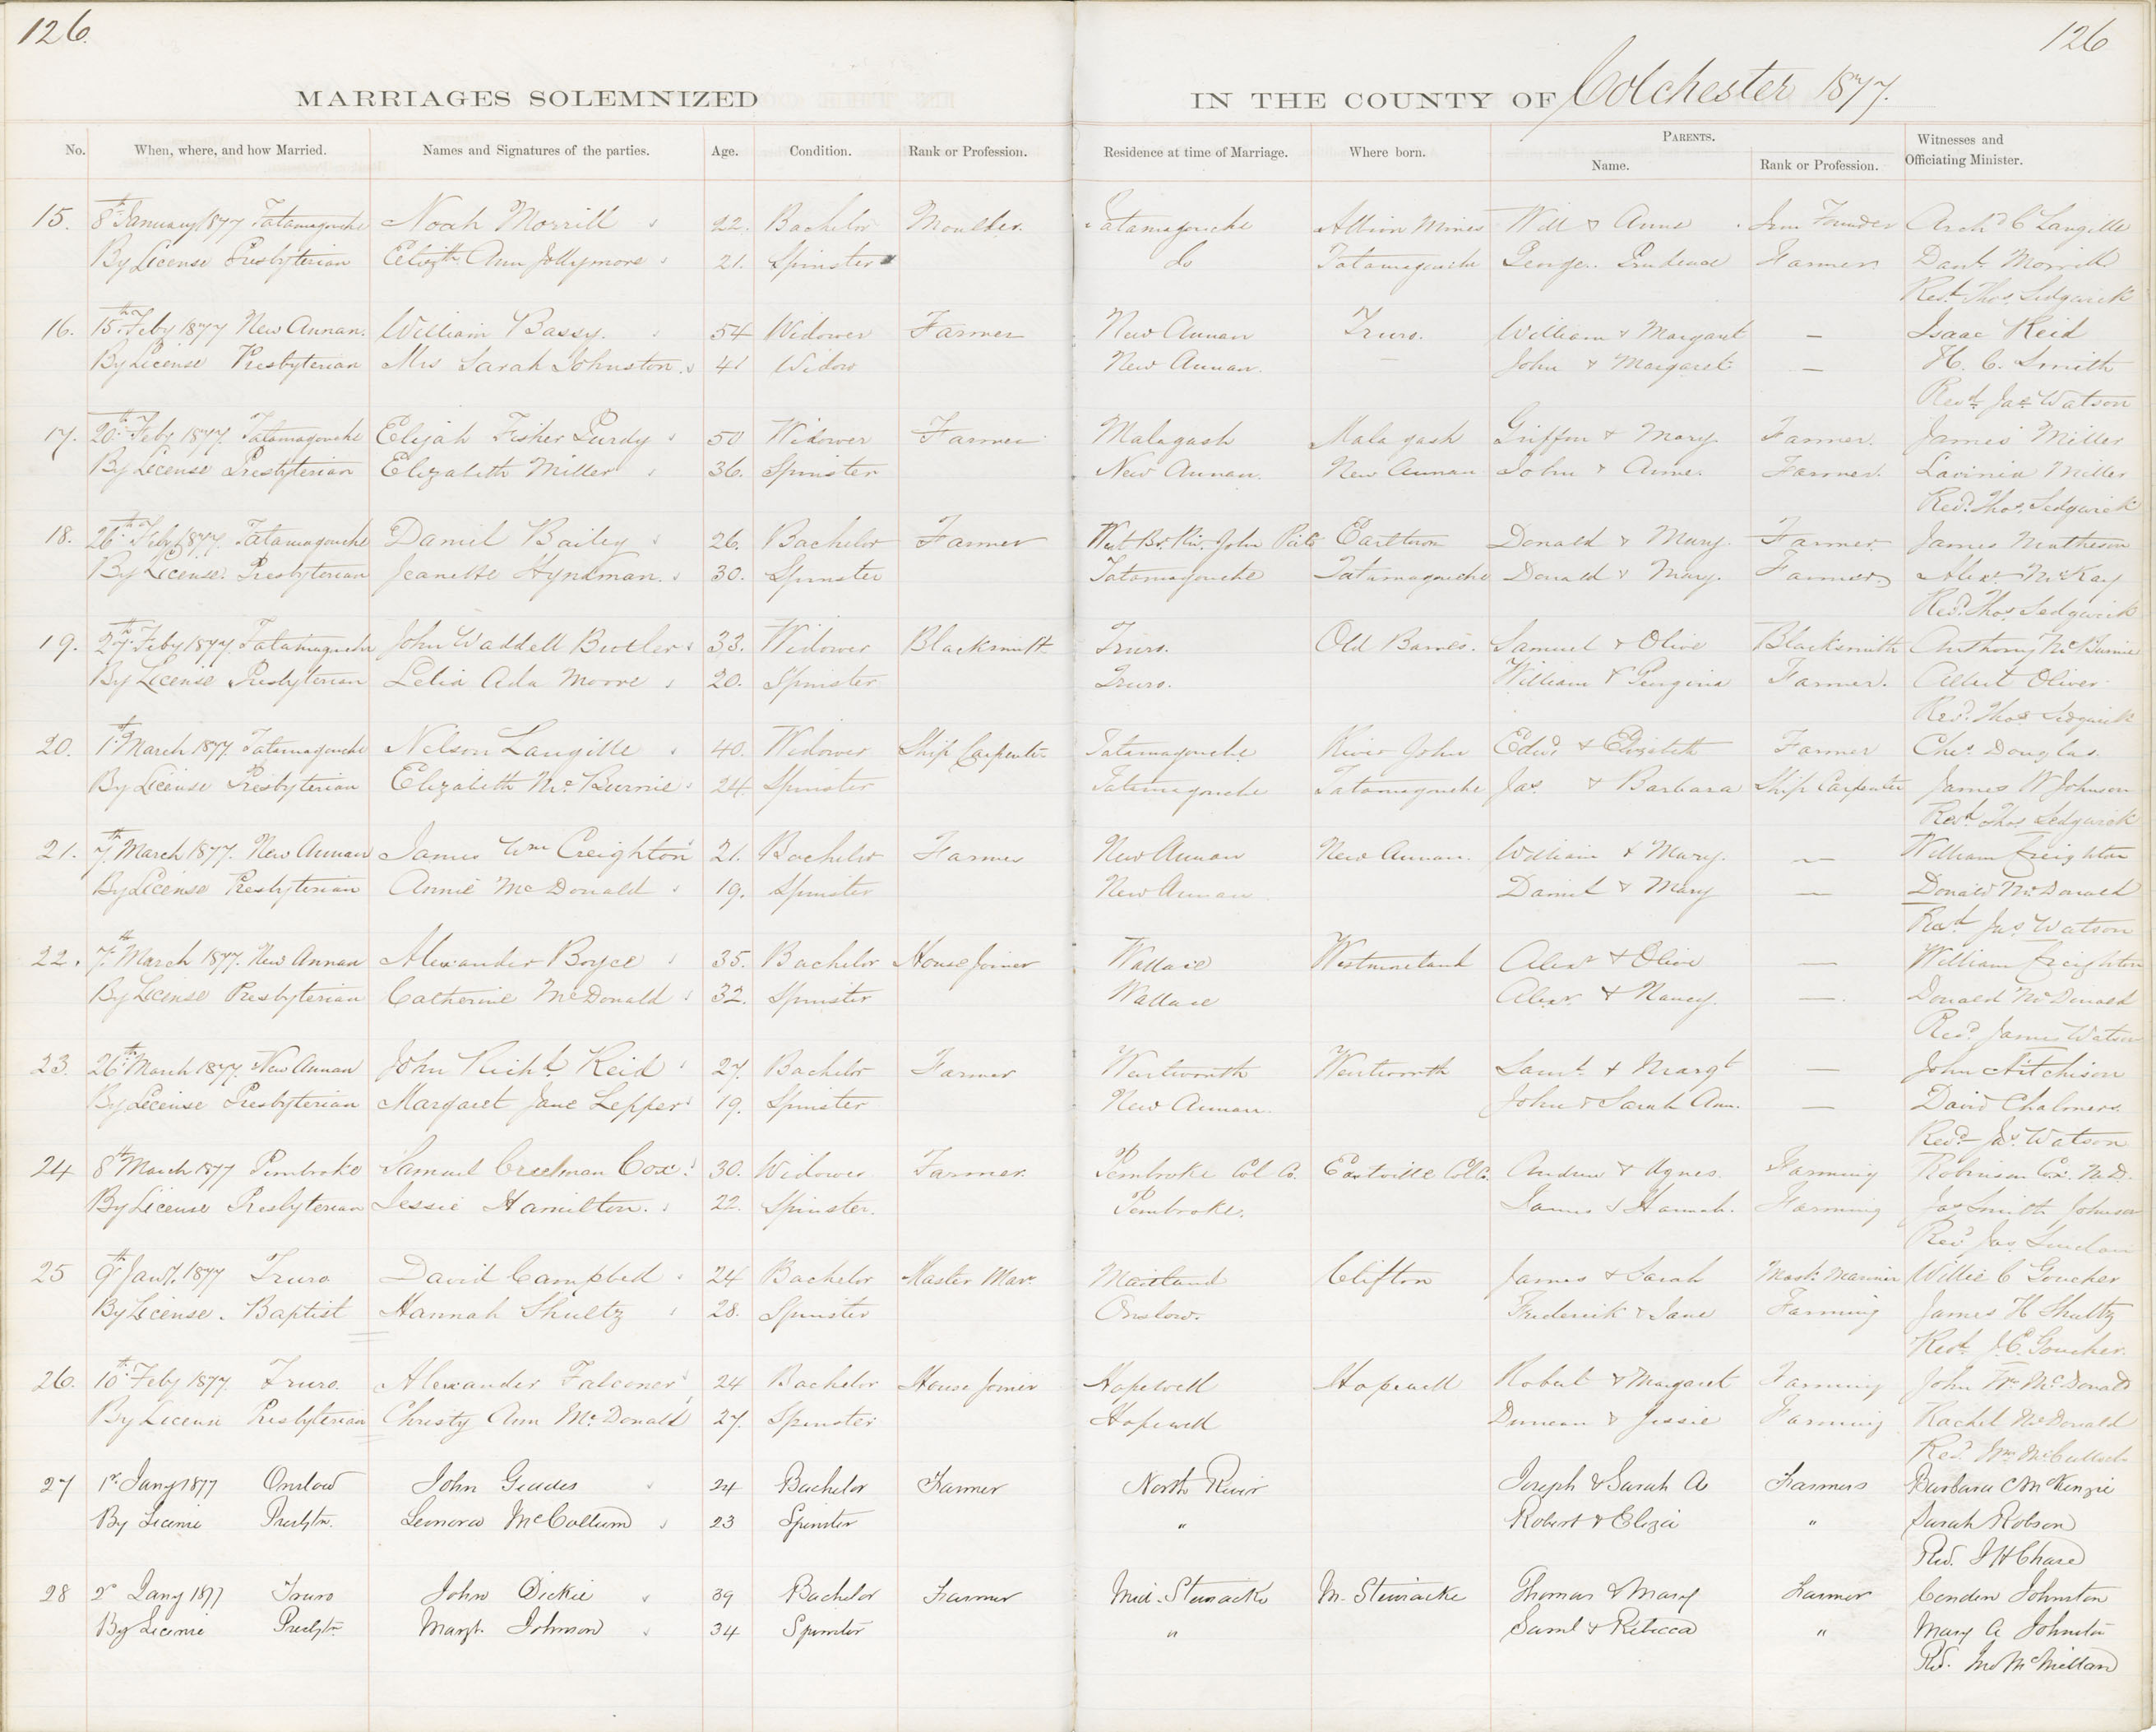 126.
126
MARRIAGES SOLEMNIZED IN THE COUNTY OF Colchester 1877.
No. When, where, and how Married. Names and Signatures of the parties. Age. Condition. Rank or Profession. Residence at time of Marriage. Where born. PARENTS. Name. Rank or Profession. Witnesses and Officiating Minister.
15. 8th January 1877 Tatamagouche Noah Morrill 22. Bachelor Moulder. Tatamagouche Albion Mines Will & Anne Iron Founder Archd C Langille
By License Presbyterian Elizth Ann Jollymore 21. Spinster do Tatamagouche George. Prudence Farmer. Danl. Morrill
Revd. Thos. Sedgwick
16. 15th Feby 1877 New Annan. William Bassy. 54 Widower Farmer New Annan Truro. William & Margaret — Isaac Reid
By License Presbyterian Mrs Sarah Johnston. 41 Widow New Annan. — John & Margaret — H. C. Smith
Revd. Jas. Watson
17. 20th Feby 1877. Tatamagouche Elijah Fisher Purdy 50 Widower Farmer Malagash Malagash Griffin & Mary. Farmer. James Miller
By License Presbyterian Elizabeth Miller 36. Spinster New Annan. New Annan John & Anne. Farmer. Lavinia Miller
Revd. Thos. Sedgwick
18. 26th Feby 1877. Tatamagouche Daniel Bailey 26. Bachelor Farmer West Br. Riv. John Earltown Donald & Mary. Farmer. James Matheson
By License. Presbyterian Jeanette Hyndman. 30. Spinster Tatamagouche Tatamagouche Donald & Mary. Farmer. Alexr. McKay
Revd. Thos. Sedgwick
19. 27th Feby 1877. Tatamagouche John Waddell Butler 33. Widower Blacksmith Truro. Old Barnes. Samuel & Olive Blacksmith Anthony McBurnie
By License Presbyterian Lelia Ada Moore 20. Spinster Truro. William & Farmer. Albert Oliver
Revd. Thos Sedgwick
20. 1st March 1877. Tatamagouche Nelson Langille 40. Widower Ship Carpenter Tatamagouche. River John Edwd. & Elizabeth Farmer Chas. Douglas.
By License Presbyterian Elizabeth McBurnie 24 Spinster Tatamagouche Tatamagouche Jas. & Barbara Ship Carpenter James W Johnson
Revd. Thos Sedgwick
21. 7th March 1877. New Annan James Wm Creighton 21. Bachelor Farmer New Annan New Annan. William & Mary. — William Creighton
By License Presbyterian Annie McDonald 19. Spinster New Annan Daniel & Mary — Donald McDonald
Revd. Jas. Watson
22. 7th March 1877. New Annan Alexander Boyce 35. Bachelor House Joiner Wallace Westmoreland Alexr & Olive — William Creighton
By License Presbyterian Catherine McDonald 32. Spinster Wallace Alexr. & Nancy. — Donald McDonald
Revd. James Watson
23. 26th March 1877. New Annan John Richd. Reid 27. Bachelor Farmer Wentworth Wentworth Saml. & Margt — John Aitchison
By License Presbyterian Margaret Jane Lepper 19. Spinster New Annan. John & Sarah Ann. — David Chalmers.
Revd. Jas. Watson
24 8th March 1877 Pembroke Samuel Creelman Cox 30. Widower Farmer. Pembroke Col Co. Eastville Col Co. Andrew & Agnes. Farming Robinson Cox. M.D.
By License Presbyterian Jessie Hamilton. 22. Spinster. Pembroke. James & Hannah. Farming Jas Smith Johnson
Revd Jas. Sinclair
25 9th Jany. 1877 Truro David Campbell 24 Bachelor Master Mar. Maitland Clifton James & Sarah Mastr. Mariner Willie C Goucher
By License. Baptist Hannah Shultz 28. Spinster Onslow. Frederick & Jane Farming James H Shultz
Revd. J. E. Goucher.
26. 10th Feby 1877 Truro. Alexander Falconer 24 Bachelor House Joiner Hopewell Hopewell Robert & Margaret Farming John Wm McDonald
By License Presbyterian Christy Ann McDonald 27. Spinster Hopewell Duncan & Jessie Farming Rachel McDonald
Revd. Wm McCulloch
27 1st Jany 1877 Onslow John Geddes 24 Bachelor Farmer North River Joseph & Sarah A Farmers Barbara C McKenzie
By License Presbytn. Leonora McCollum 23 Spinster " Robert & Eliza " Sarah Robson
Revd. J H Chase
28 2d Jany 1877 Truro John Dickie 39 Bachelor Farmer Mid. Stewiacke M. Stewiacke Thomas & Mary Farmer Johnston
By License Presbytn Margt. Johnson 34 Spinster " Saml & Rebecca " Mary A Johnston
Revd. McMillan